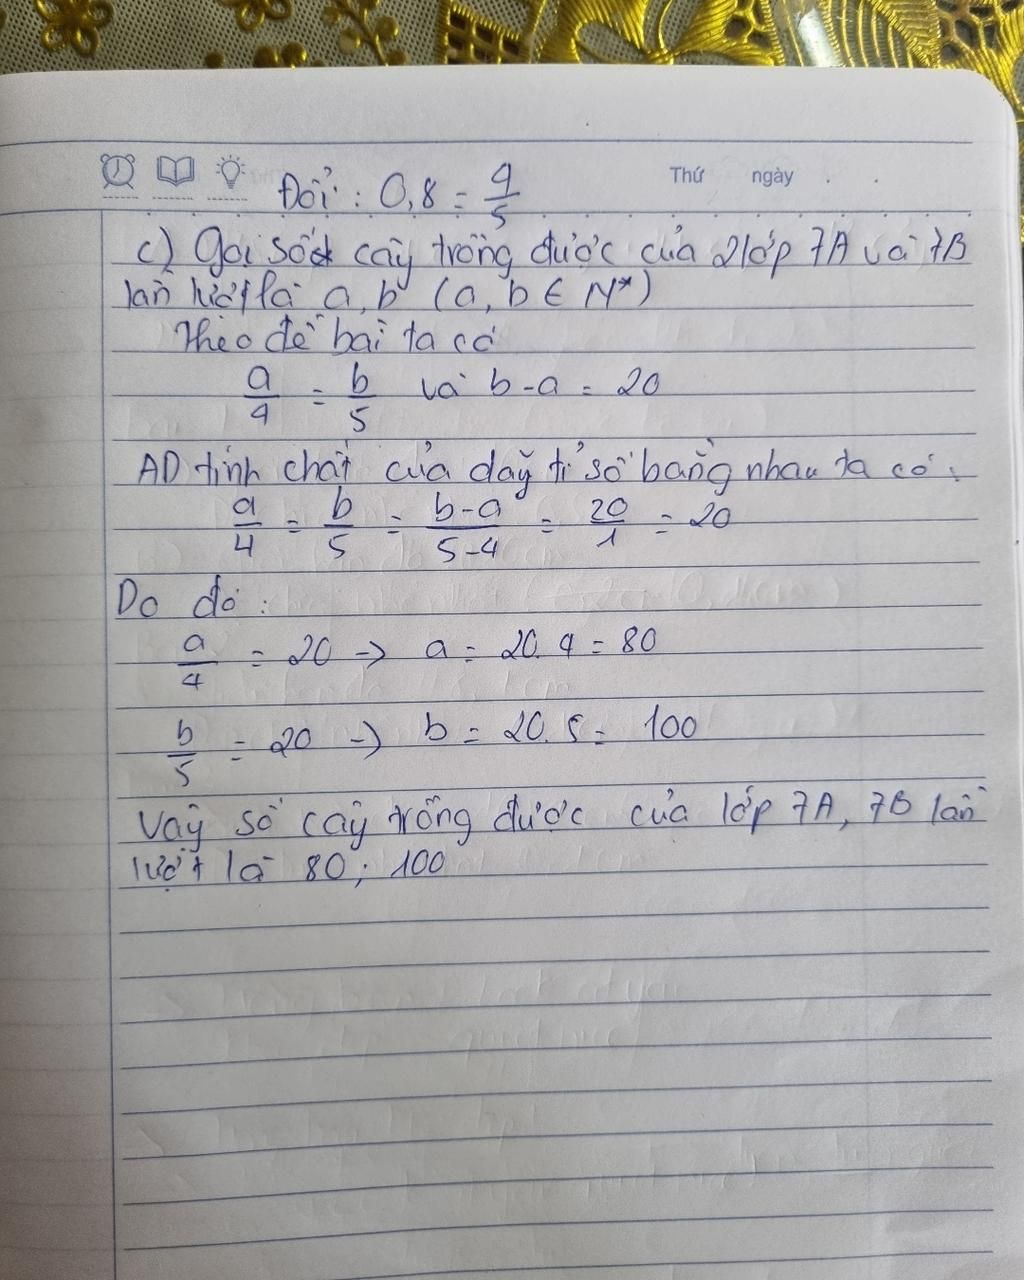 Thứ ngày . .
Đổi : 0,8 = 4/5
c) Gọi số cây trồng được của 2 lớp 7A và 7B
lần lượt là a, b (a, b ∈ N*)
Theo đề bài ta có
a/4 = b/5 và b - a = 20
AD tính chất của dãy tỉ số bằng nhau ta có :
a/4 = b/5 = b-a/5-4 = 20/1 = 20
Do đó :
a/4 = 20 → a = 20. 4 = 80
b/5 = 20 → b = 20. 5 = 100
Vậy số cây trồng được của lớp 7A, 7B lần
lượt là 80 ; 100